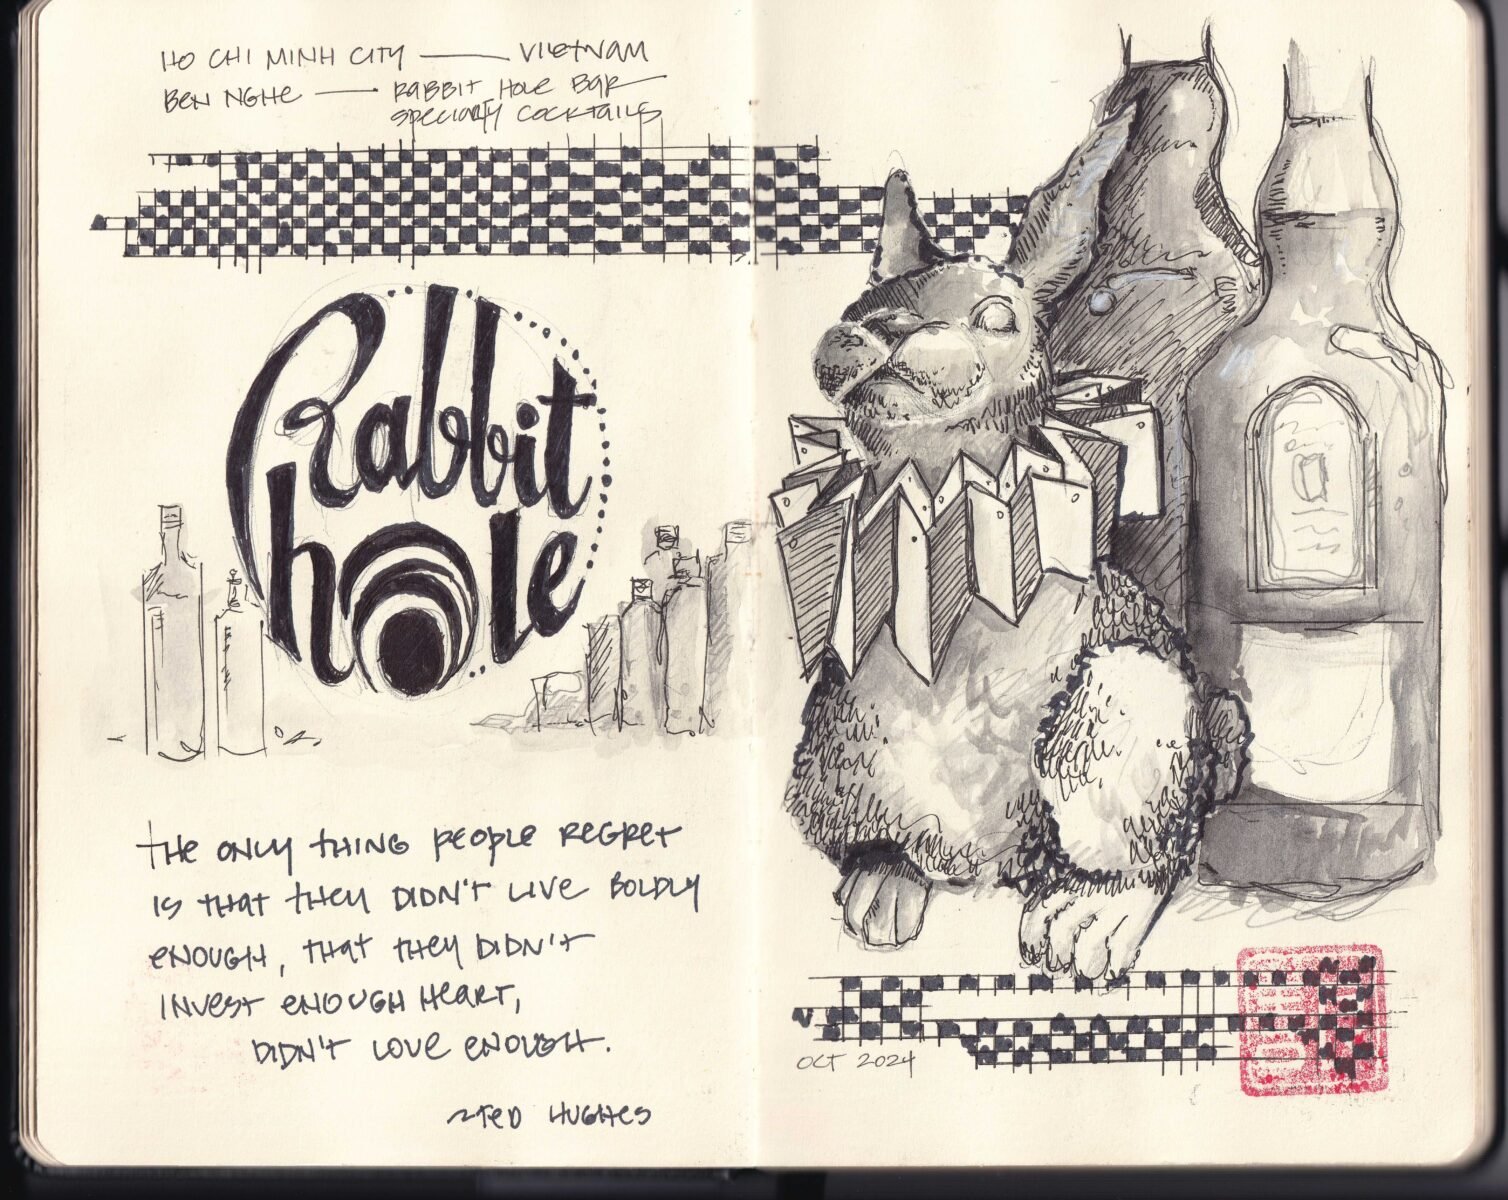 HO CHI MINH CITY — VIETNAM
BEN NGHE — RABBIT HOLE BAR
SPECIALTY COCKTAILS
Rabbit
hole
THE ONLY THING PEOPLE REGRET
IS THAT THEY DIDN'T LIVE BOLDLY
ENOUGH, THAT THEY DIDN'T
INVEST ENOUGH HEART,
DIDN'T LOVE ENOUGH.
~TED HUGHES
OCT 2024